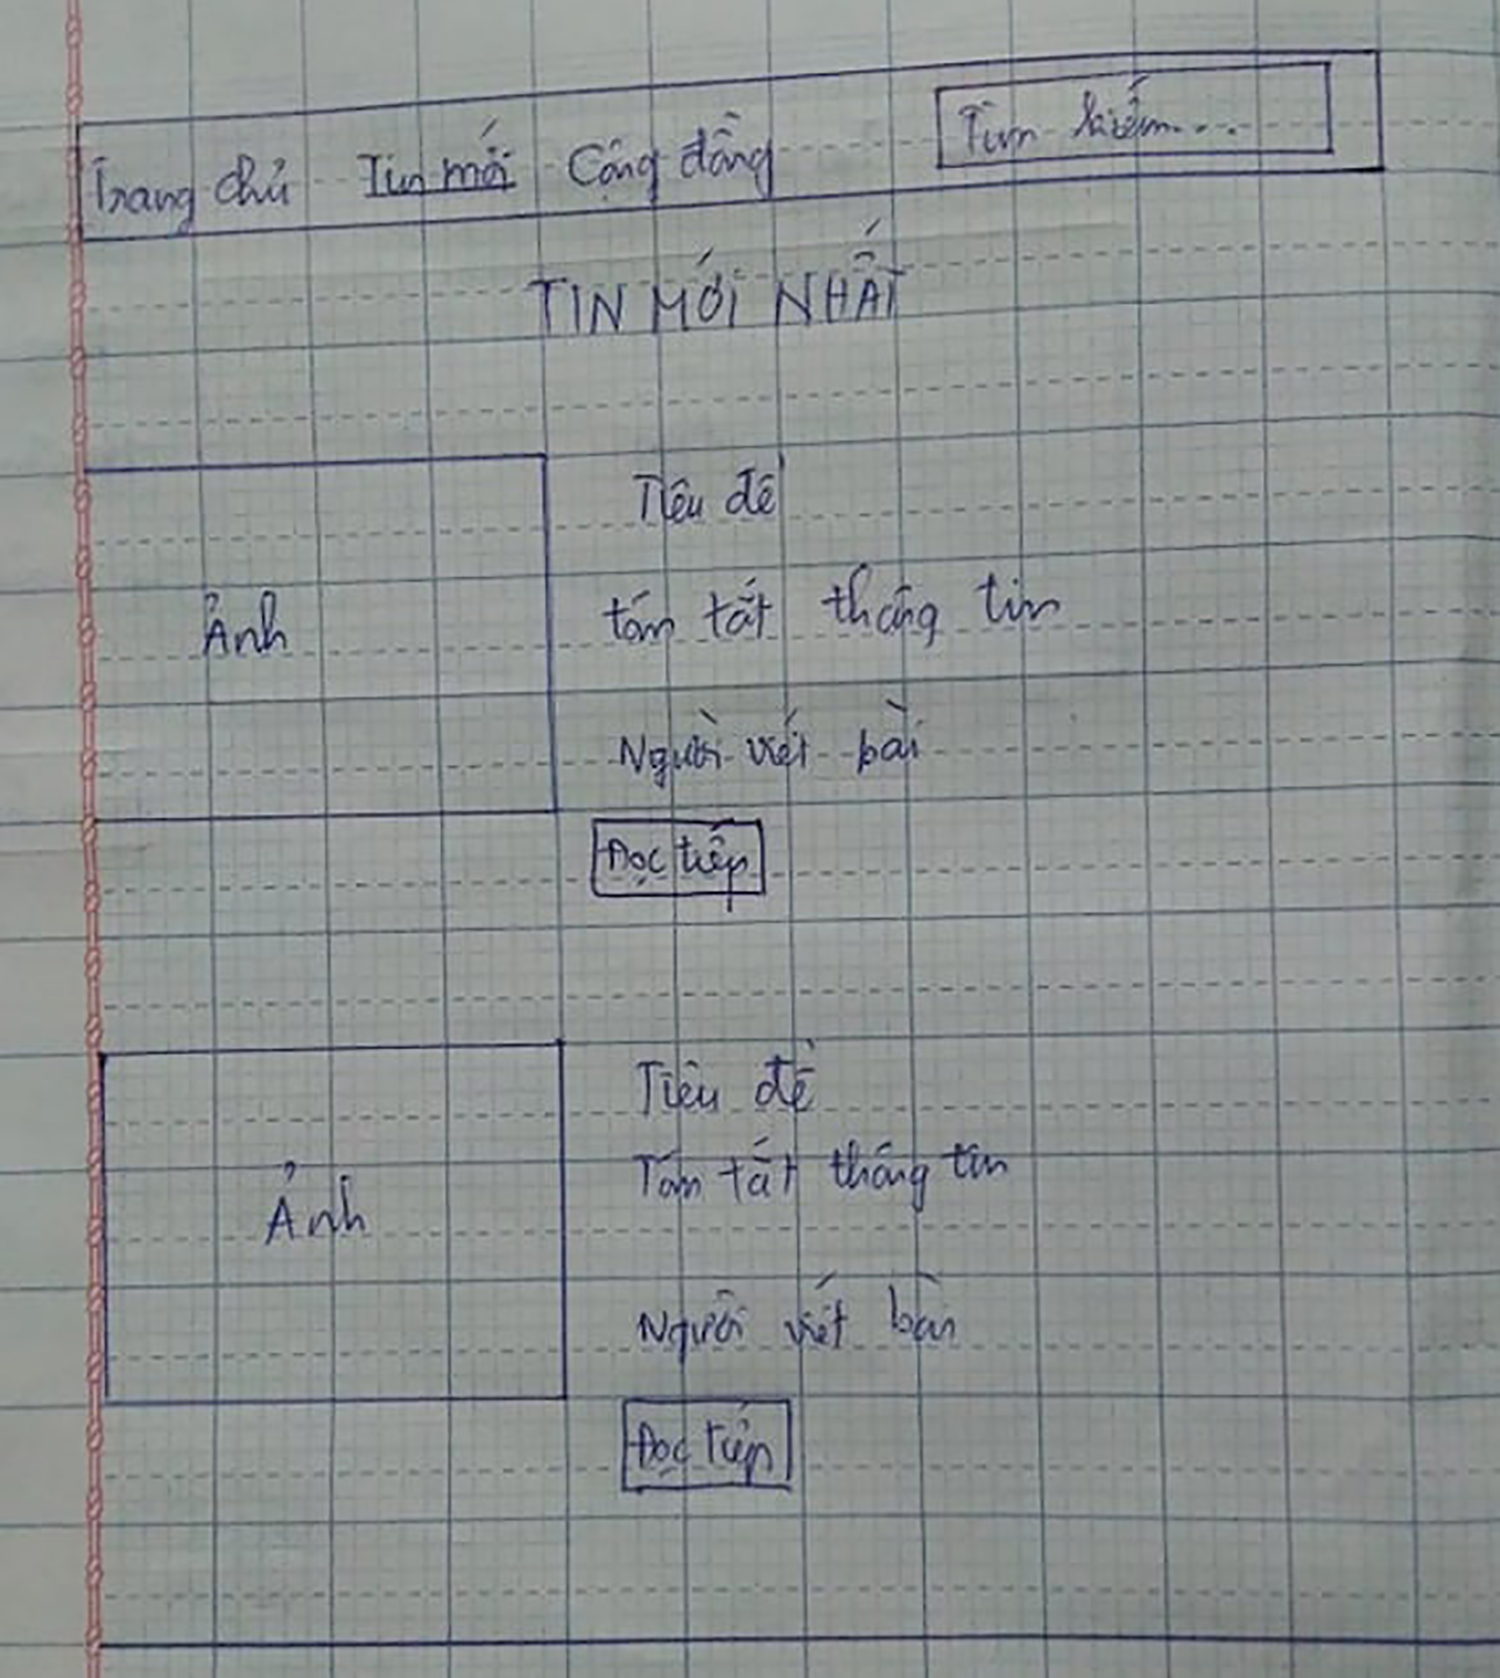 Trang chủ Tin mới Cộng đồng Tìm kiếm...
TIN MỚI NHẤT
Tiêu đề
Ảnh tóm tắt thông tin
Người viết bài
Đọc tiếp
Tiêu đề
Tóm tắt thông tin
Ảnh
Người viết bài
Đọc tiếp